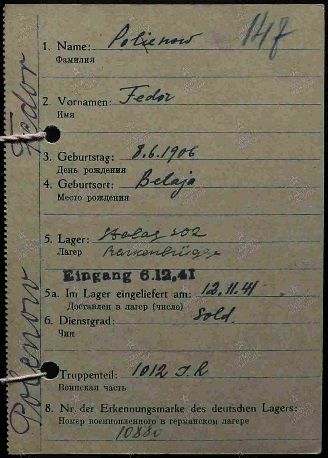 147
1. Name: Polienow
Фамилия
2. Vornamen: Fedor
Имя
3. Geburtstag: 8.6.1906
День рождения
4. Geburtsort: Belaja
Место рождения
5. Lager: Stalag 302
Лагер
Eingang 6.12.41
5a. Im Lager eingeliefert am: 12.11.41
Доставлен в лагер (число)
6. Dienstgrad: Sold.
Чин
Truppenteil: 1012 J.R
Воинская часть
8. Nr. der Erkennungsmarke des deutschen Lagers:
Номер военнопленного в германском лагере
10880
Polenow Fedor